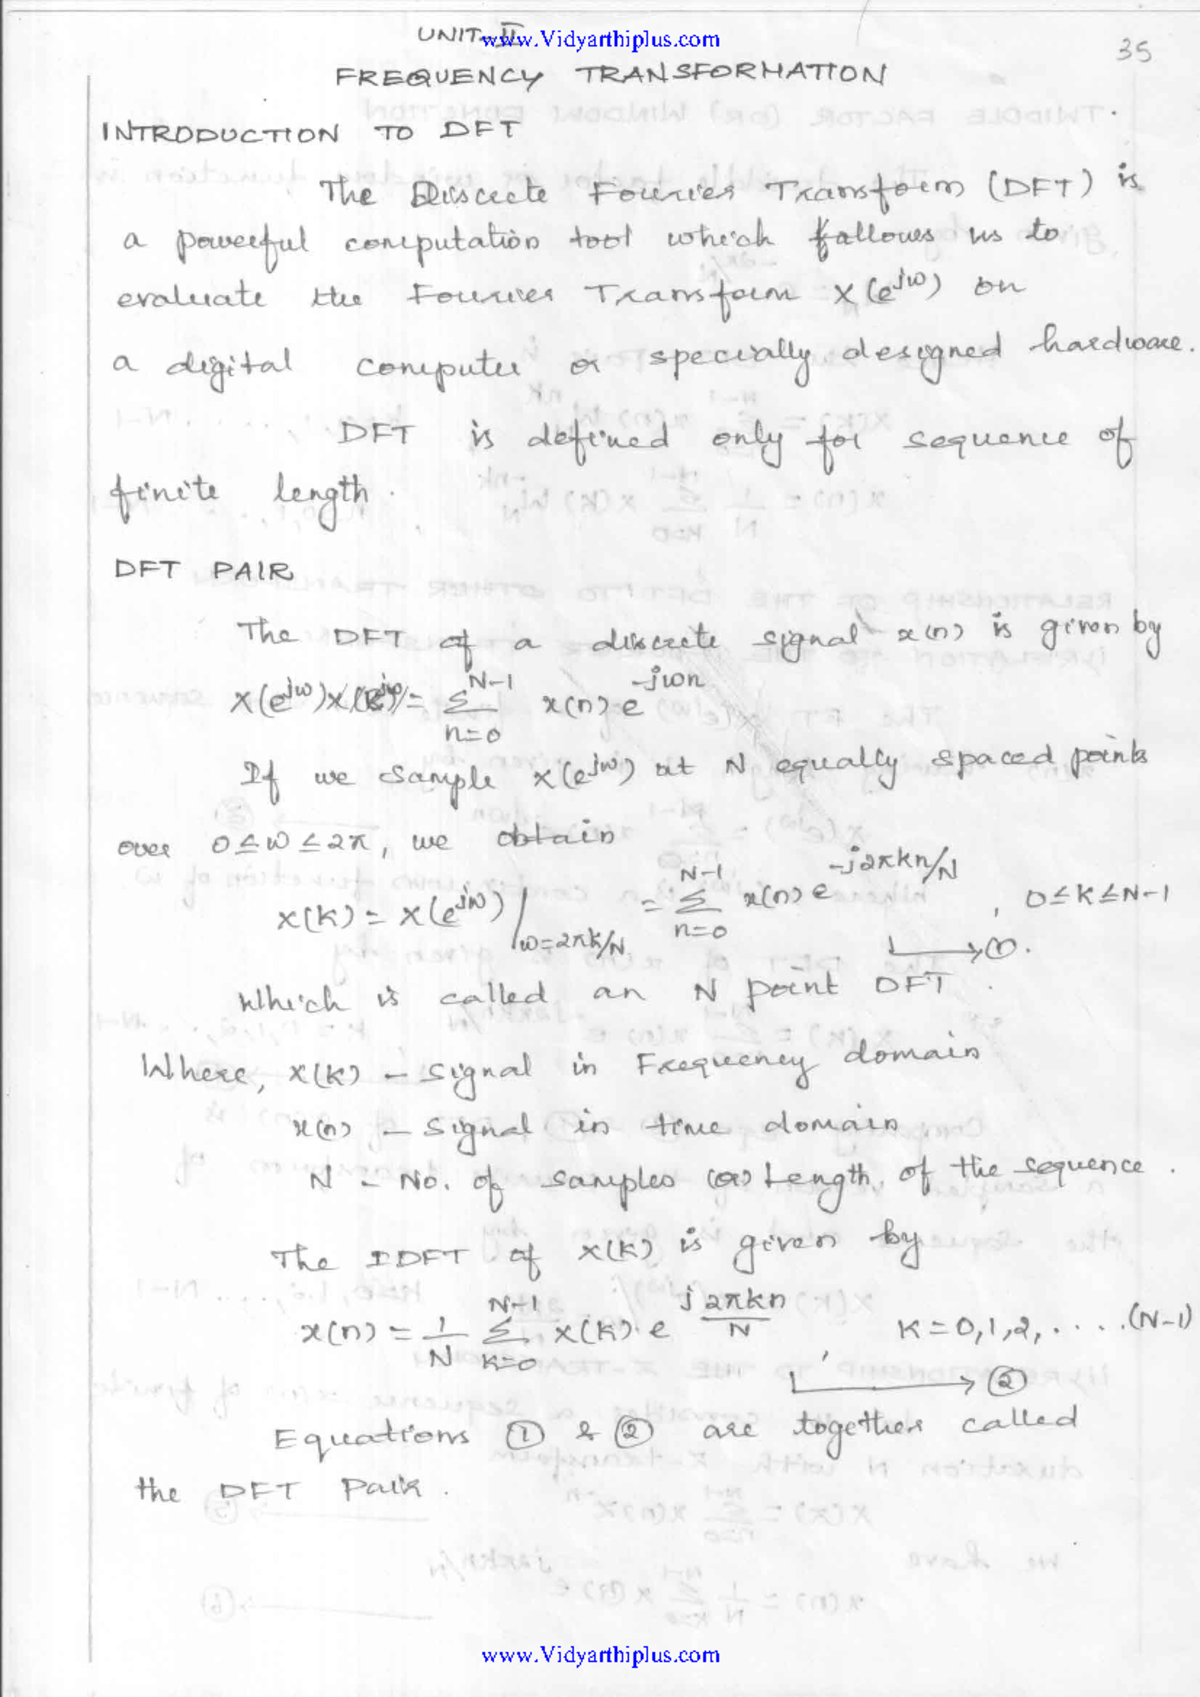 UNIT-II
www.Vidyarthiplus.com
35
FREQUENCY TRANSFORMATION
INTRODUCTION TO DFT
The Discrete Fourier Transform (DFT) is
a powerful computation tool which allows us to
evaluate the Fourier Transform X(e^jω) on
a digital computer or specially designed hardware.
DFT is defined only for sequence of
finite length.
DFT PAIR
The DFT of a discrete signal x(n) is given by
X(e^jω) = Σ_{n=0}^{N-1} x(n)·e^{-jωn}
If we sample X(e^jω) at N equally spaced points
over 0≤ω≤2π, we obtain
X(K) = X(e^jω)|_{ω=2πk/N} = Σ_{n=0}^{N-1} x(n) e^{-j2πkn/N}, 0≤K≤N-1
→ ①.
Which is called an N point DFT.
Where, X(K) - Signal in Frequency domain
x(n) - Signal in time domain
N - No. of samples (or) Length of the sequence.
The IDFT of X(K) is given by
x(n) = 1/N Σ_{K=0}^{N-1} X(K)·e^{j2πkn/N}, K=0,1,2,....(N-1)
→ ②
Equations ① & ② are together called
the DFT Pair.
www.Vidyarthiplus.com